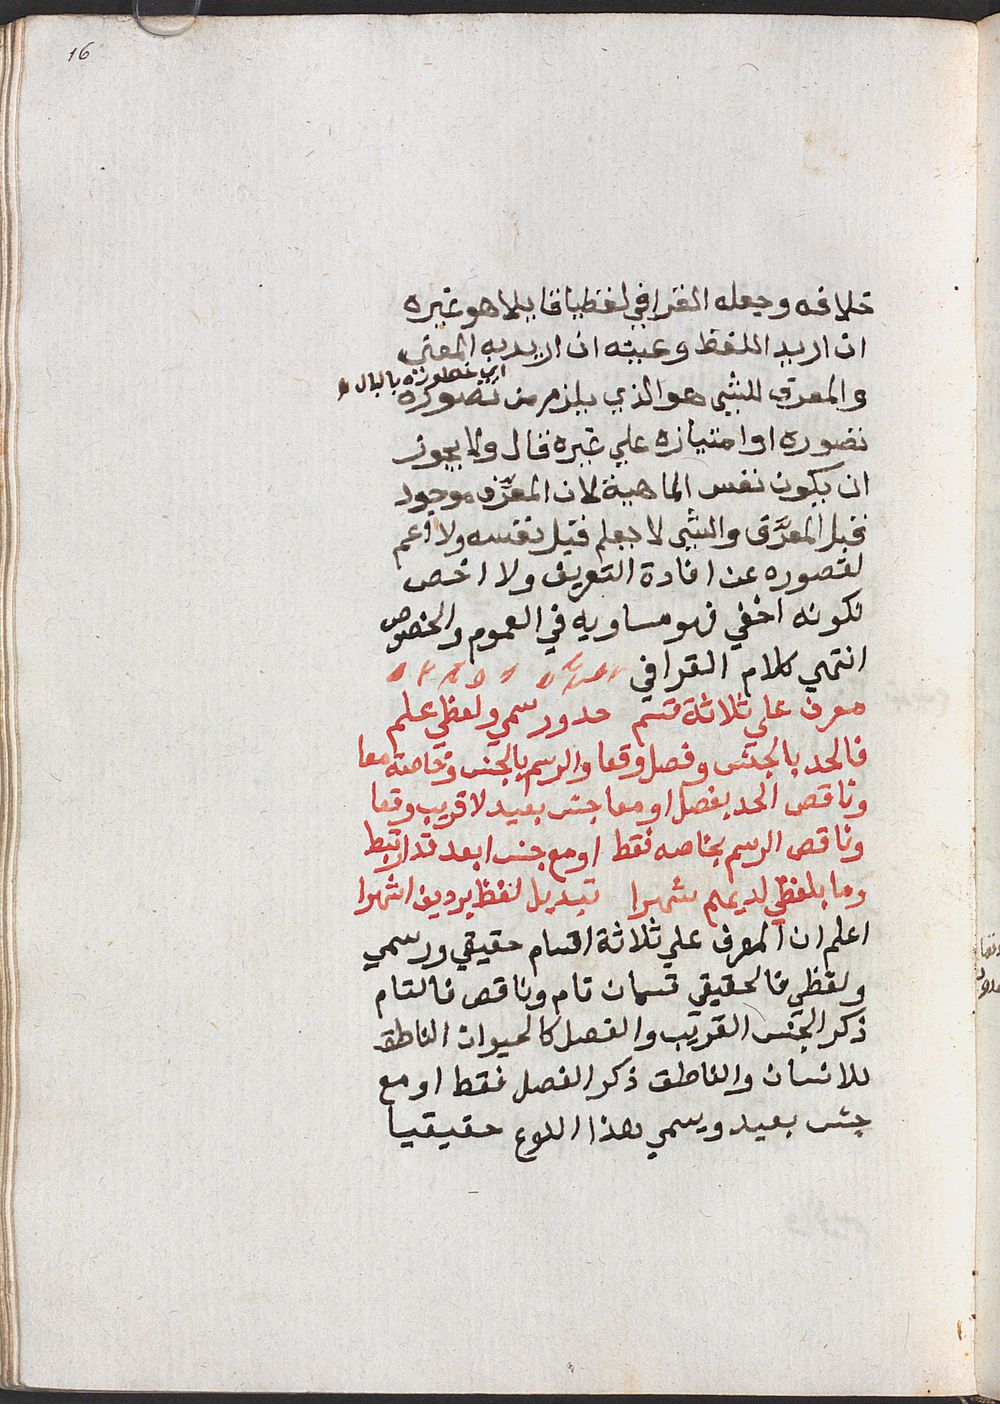 16
خلافه وجعله القرافي لفظيا قايلا ما هو غيره
ان اريد اللفظ وعينه ان اريد به المعني
اي خطوره بالبال
والمعرف للشي هو الذي يلزم من تصوره
تصوره او امتيازه علي غيره قال ولا يجوز
ان يكون نفس الماهية لان المعرِّف موجود
قبل المعرَّف والشي لا يعلم قبل نفسه ولا اعم
لقصوره عن افادة التعريف ولا اخص
لكونه اخفي فهو مساويه في العموم والخصوص
انتهي كلام القرافي
معرف علي ثلاثة قسم حد ورسمي ولفظي علم
فالحد بالجنس وفصل وقعا والرسم بالجنس وخاصة معا
وناقص الحد بفصل او معا جنس بعيد لا قريب وقعا
وناقص الرسم بخاصه فقط او مع جنس ابعد قد ارتبط
وما بلفظي لديهم شهرا تبديل لفظ برديف اشهرا
اعلم ان المعرف علي ثلاثة اقسام حقيقي ورسمي
ولفظي فالحقيقي قسمان تام وناقص فالتام
ذكر الجنس القريب والفصل كالحيوان الناطق
للانسان والناطق ذكر الفصل فقط او مع
جنس بعيد ويسمي هذا النوع حقيقيا